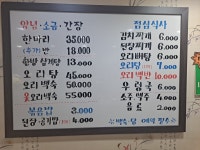 양념·소금·간장
한마리 35.000
(추가) 반 18.000
한방 삼계탕 13.000
오리탕 45.000
오리백숙 50.000
옻오리백숙 55.000
볶음밥 3.000
된장·공기밥 4.000
점심식사
김치찌개 6.000
된장찌개 6.000
오리뼈탕 6.000
오리탕 7.000
오리백반 10.000
음료수
소주·맥주 4.000
4.000